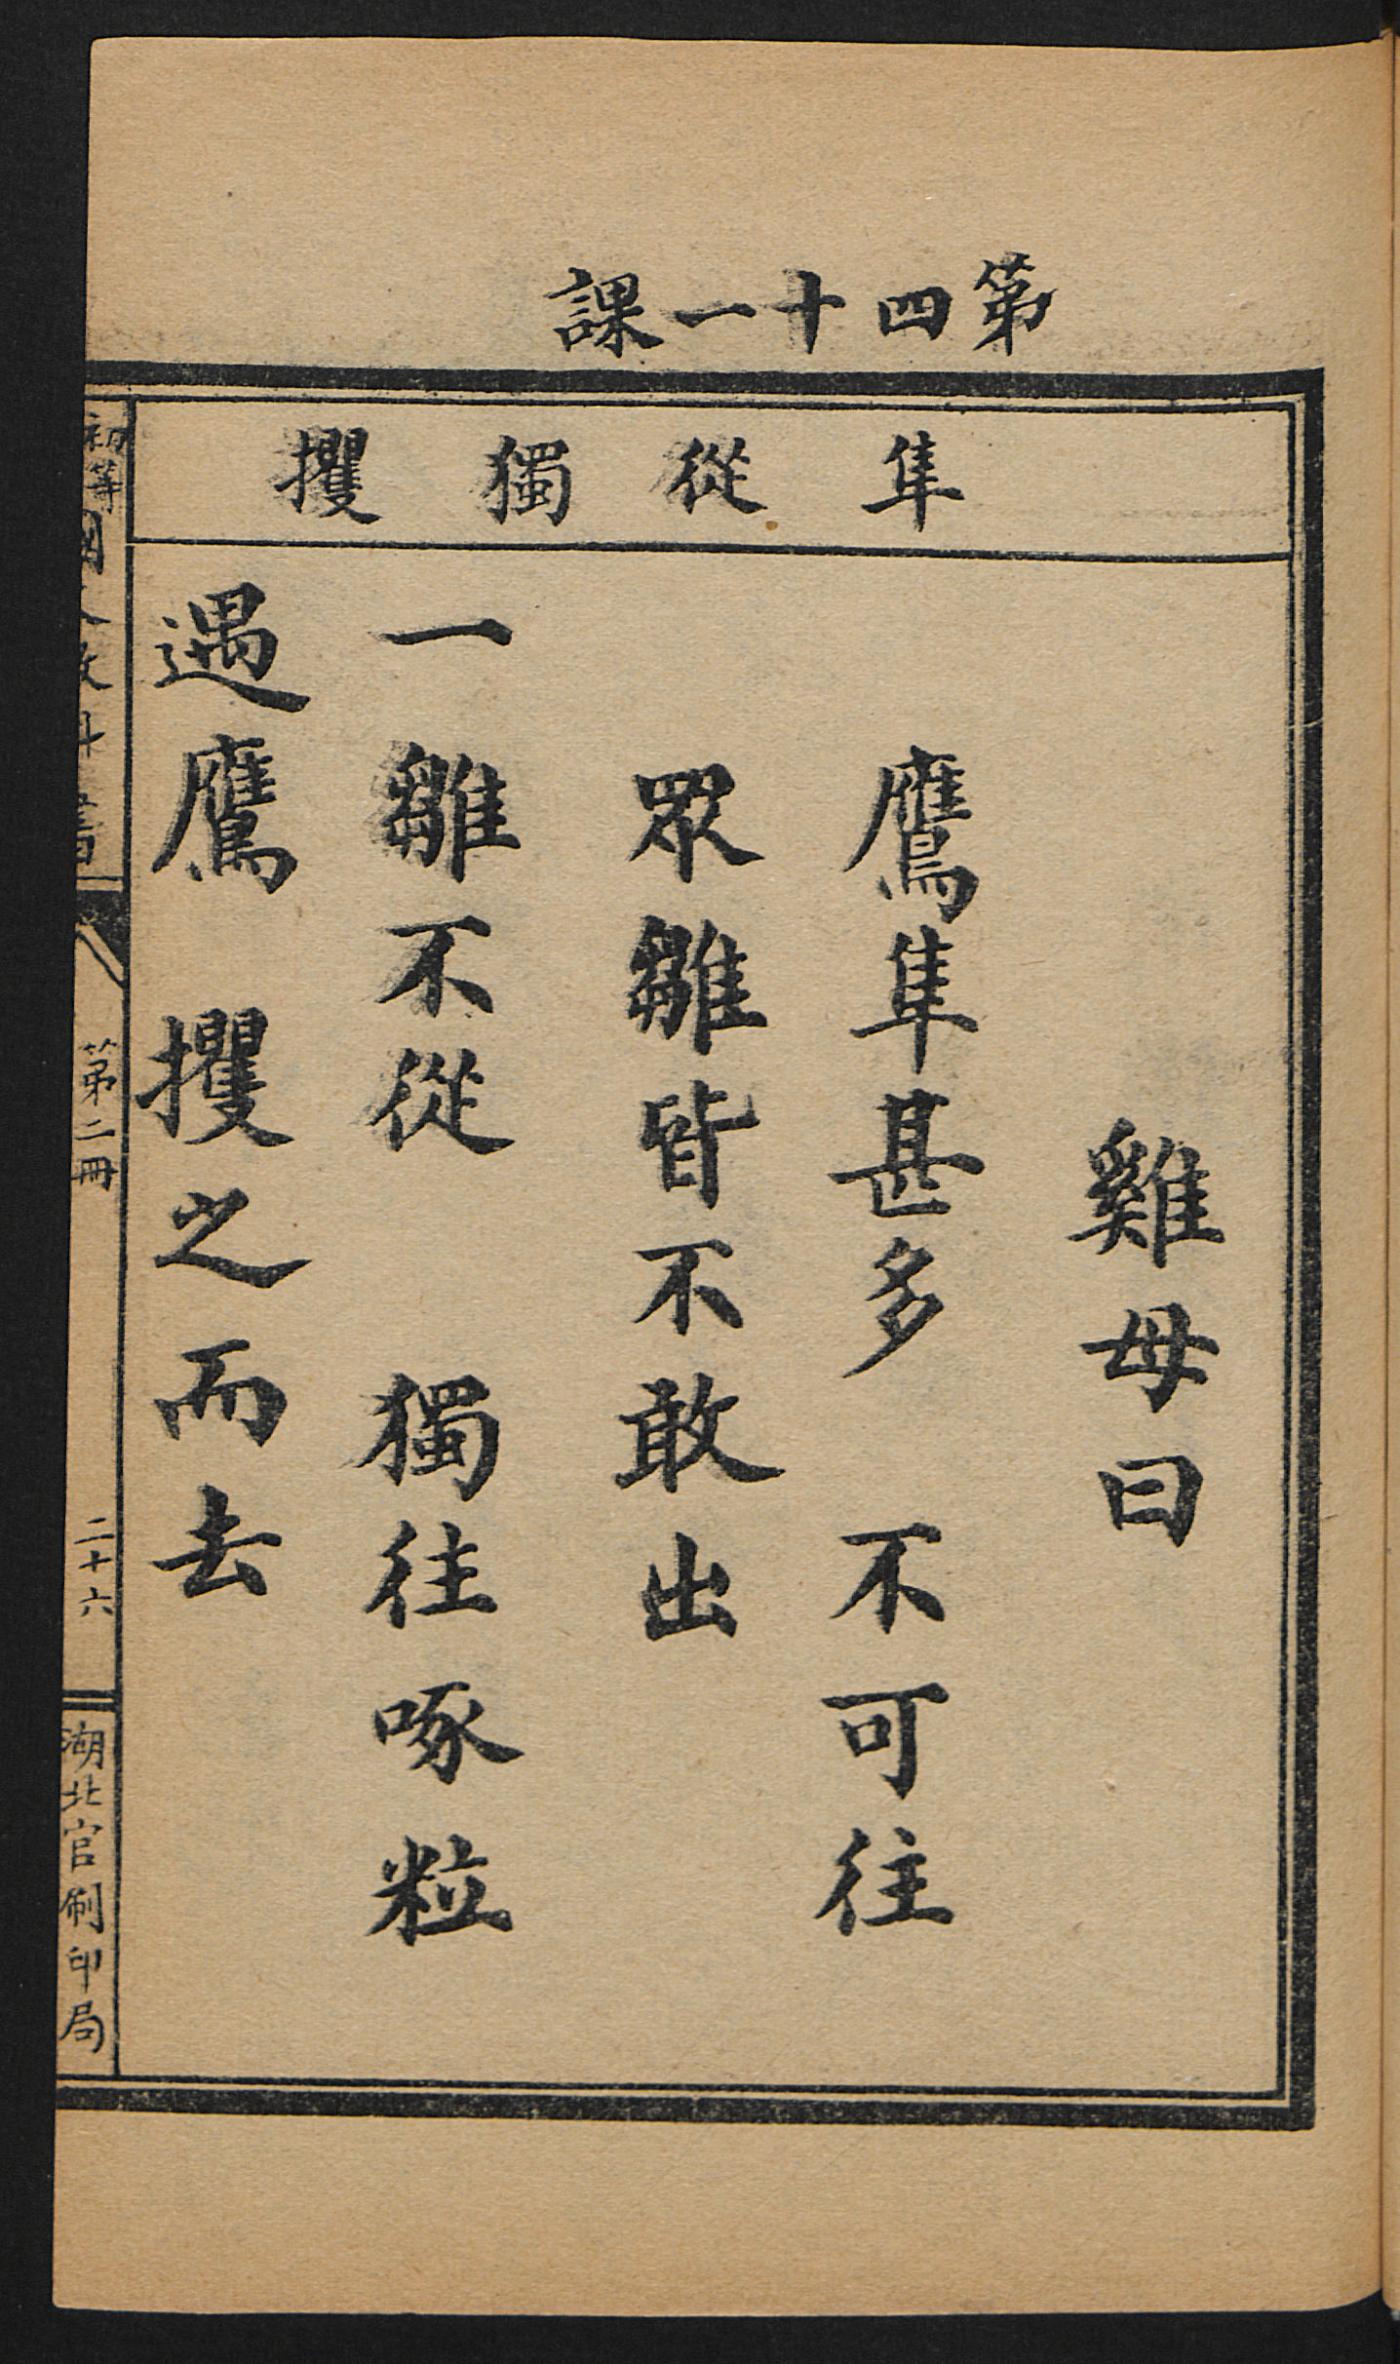 第四十一課
隼從獨攫
雞母曰
鷹隼甚多　不可往
眾雛皆不敢出
一雛不從　獨往啄粒
遇鷹　攫之而去
初等國文教科書
第二冊
二十六
湖北官刷印局